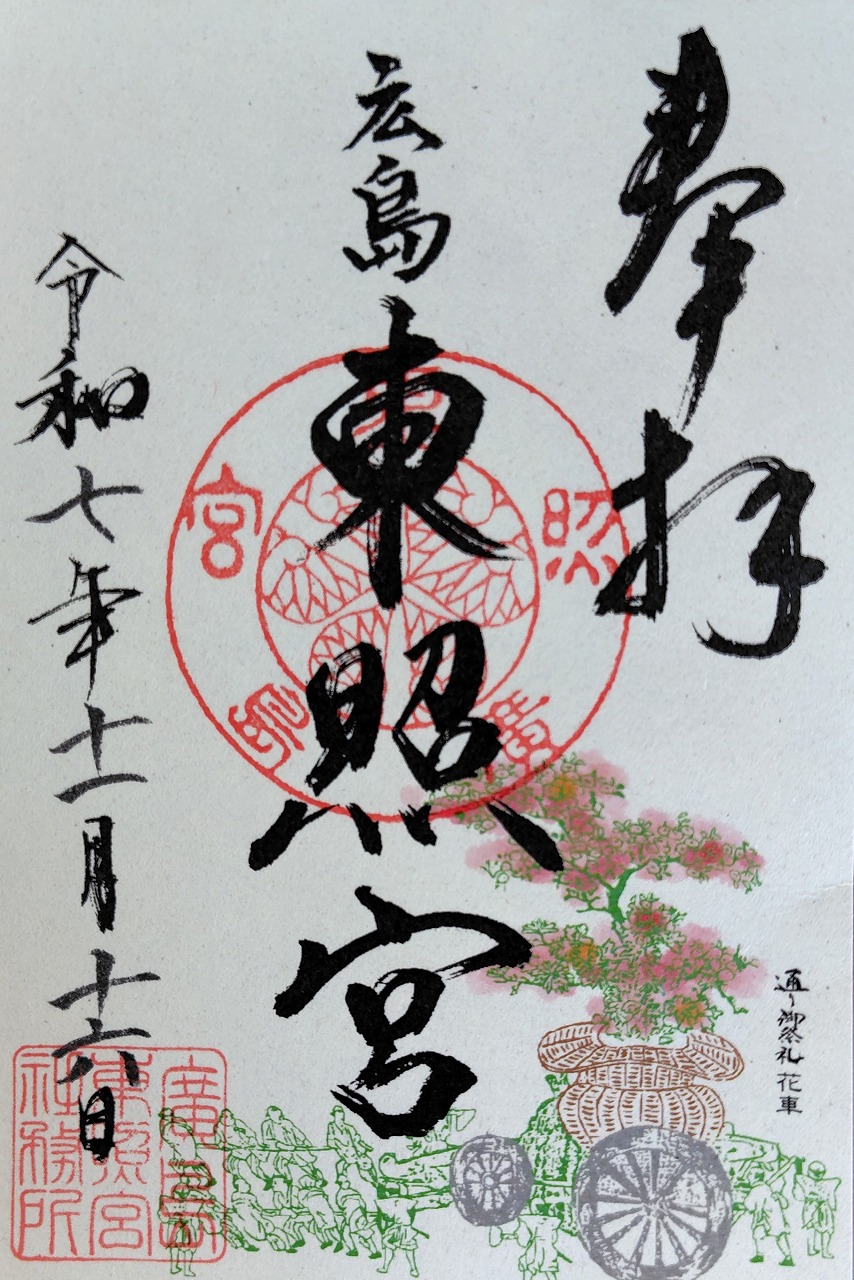 奉拝
広島
東照宮
令和七年十一月十六日
通り御祭礼 花車
廣島
東照宮
社務所
廣島東照宮